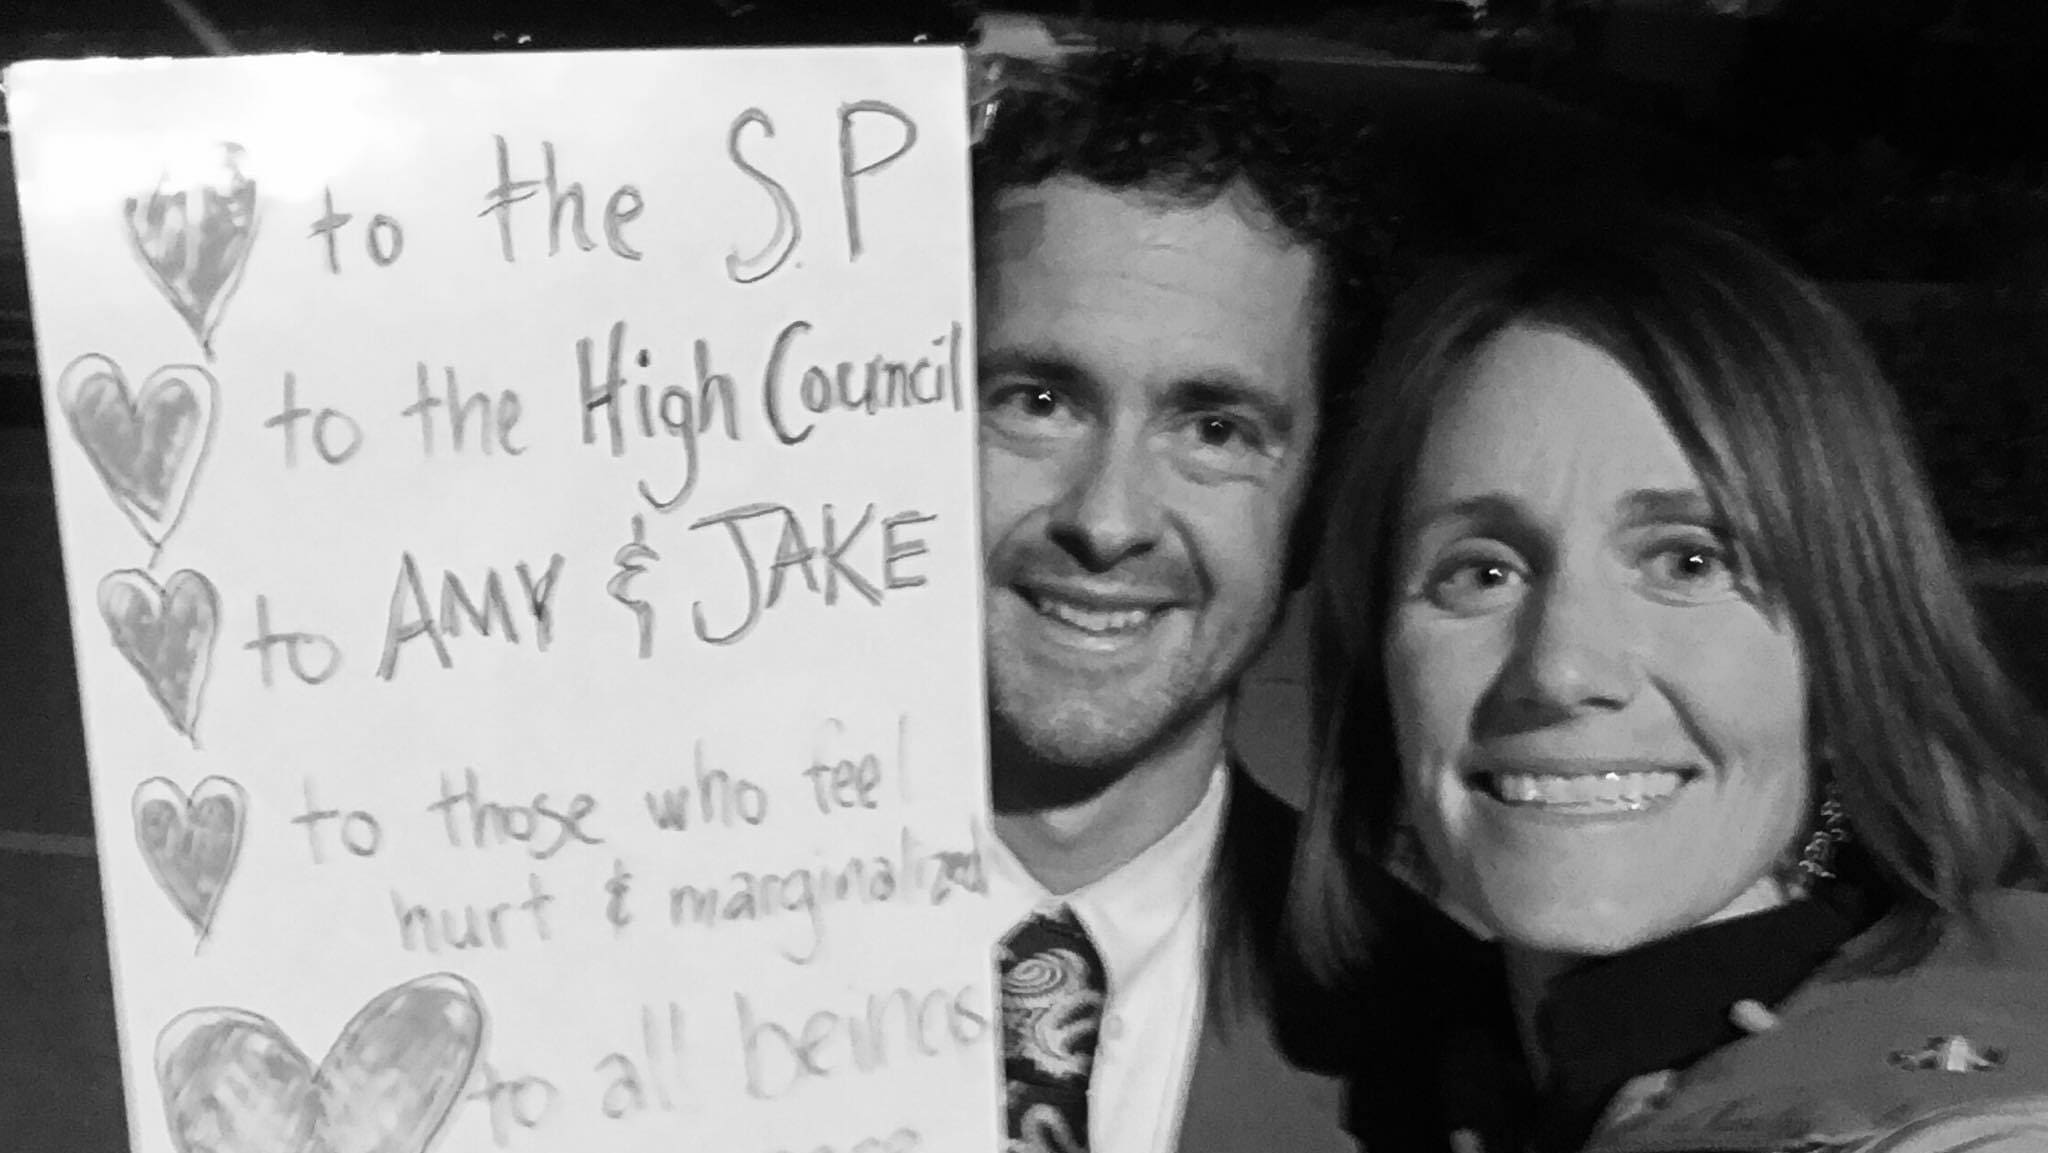 to the S.P
to the High Council
to AMY & JAKE
to those who feel
hurt & marginalized
to all beings